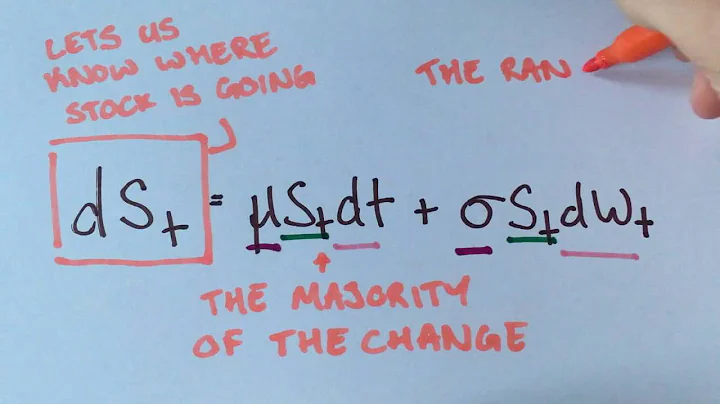 LETS US
KNOW WHERE
STOCK IS GOING
THE RAN
dS_t = μS_t dt + σS_t dW_t
THE MAJORITY
OF THE CHANGE